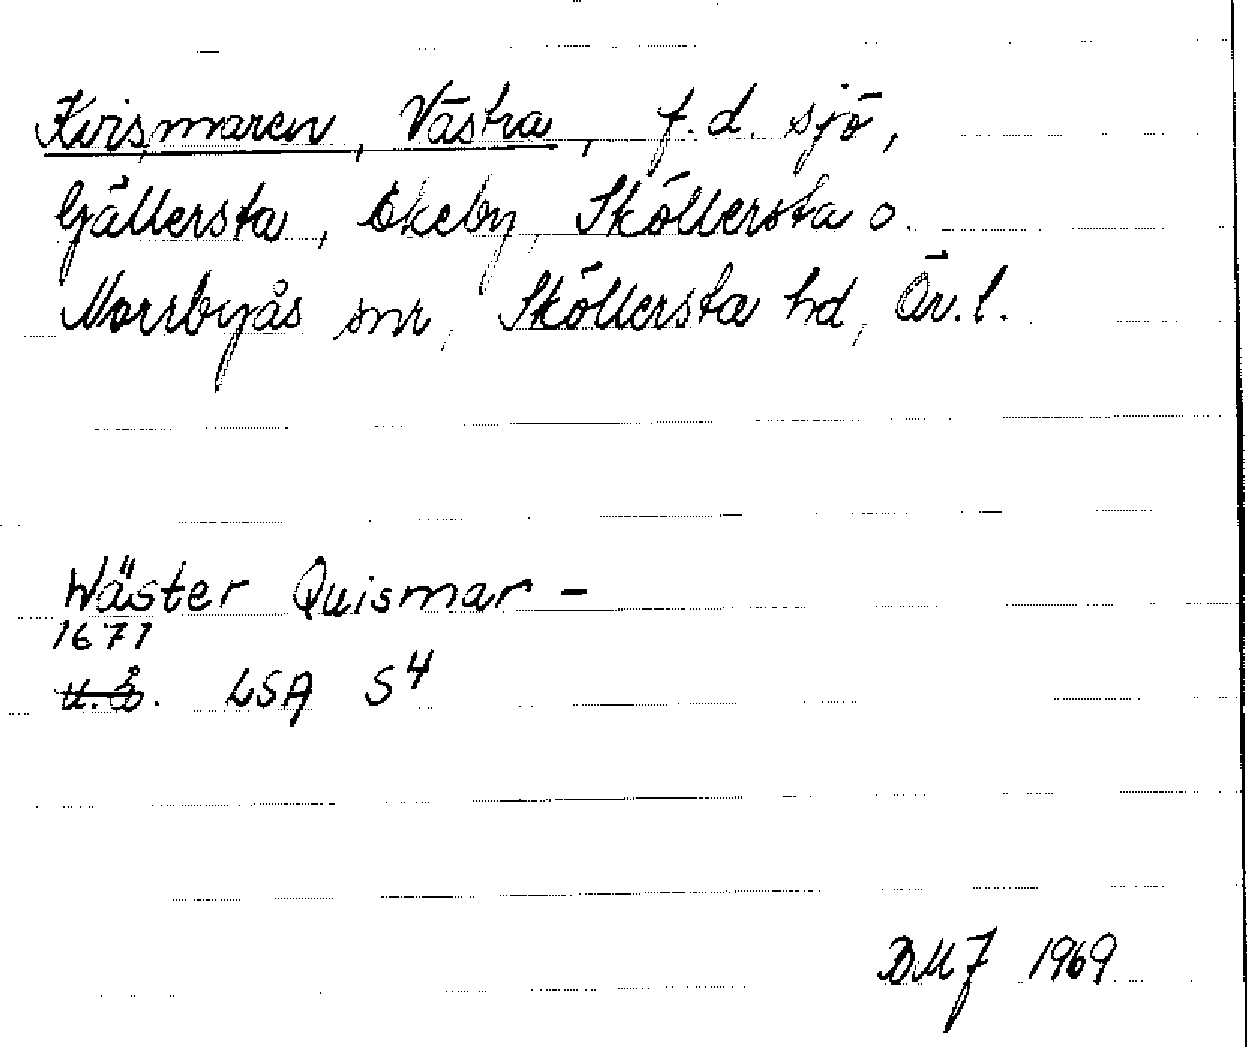 Kvismaren, Västra, f.d. sjö,
Gällersta, Ekeby, Sköllersta o.
Norrbyås snr, Sköllersta hd, Ör.l.
Wäster Quismar -
1671
u.å. LSA S4
BMJ 1969